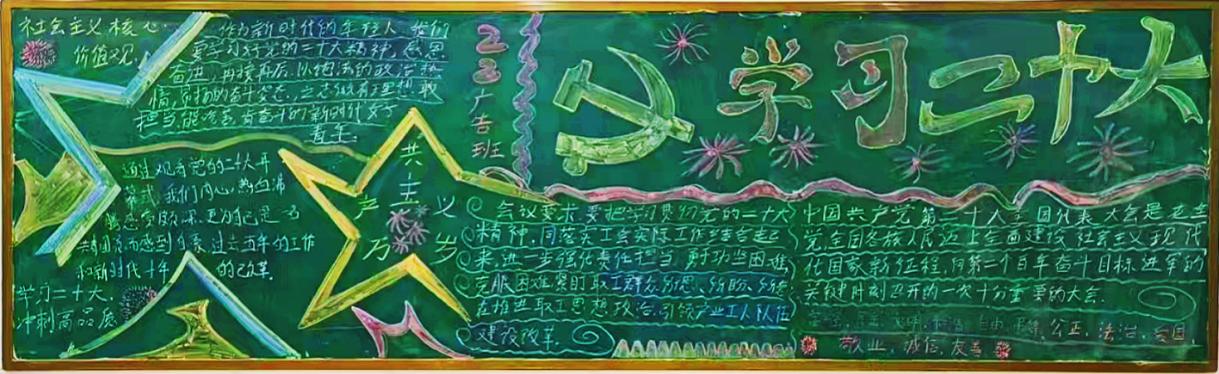 社会主义核心
价值观
作为新时代的年轻人 我们
要学习好党的二十大精神，感恩
奋进，再接再厉，以饱满的政治热
情，昂扬的奋斗姿态，立志做有理想 敢
担当，能吃苦 肯奋斗的新时代好
青年。
22广告班
学习二十大
通过观看党的二十大开
幕式，我们内心热血沸
腾感受颇深，更为自己是一名
共和国 而感到自豪 过去五年的工作
和新时代十年 的改革。
学习二十大，
冲刺高品质
共产主义万岁
会议要求 要把学习贯彻党的二十大
精神，同落实工会实际工作结合起
来，进一步强化责任担当，勇于攻坚困难，
克服困难 紧盯职工群众所思、所盼、所想
在推进职工思想政治引领产业工人队伍
建设改革。
中国共产党第二十次全国代表大会是在全
党全国各族人民迈上全面建设社会主义现代
化国家新征程，向第二个百年奋斗目标进军的
关键时刻召开的一次十分重要的大会。
富强，民主，文明，和谐，自由，平等，公正，法治，爱国，
敬业，诚信，友善